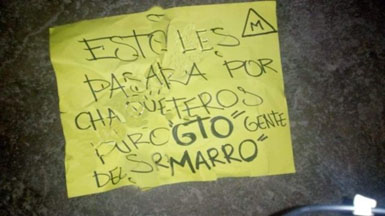 ESTO LES
M
PASARA POR
CHAPUETEROS
PURO GTO" GENTE
DEL SR MARRO"